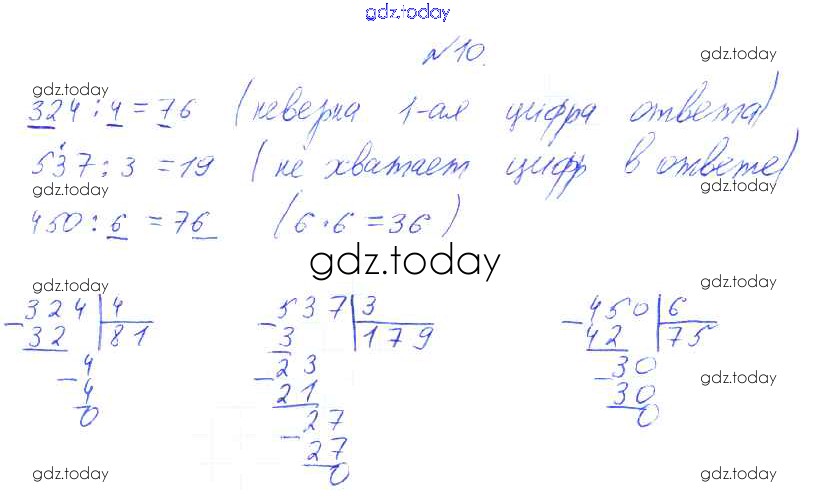 gdz.today
№10.
gdz.today
gdz.today
324 : 4 = 76 (неверна 1-ая цифра ответа)
gdz.today
537 : 3 = 19 (не хватает цифр в ответе)
gdz.today
gdz.today
450 : 6 = 76 (6·6=36)
gdz.today
gdz.today
gdz.today
324 | 4
537 | 3
450 | 6
- 32 | 81
- 3 | 179
- 42 | 75
4
- 23
30
- 4
21
- 30
0
27
0
- 27
0
gdz.today
gdz.today
gdz.today
gdz.today